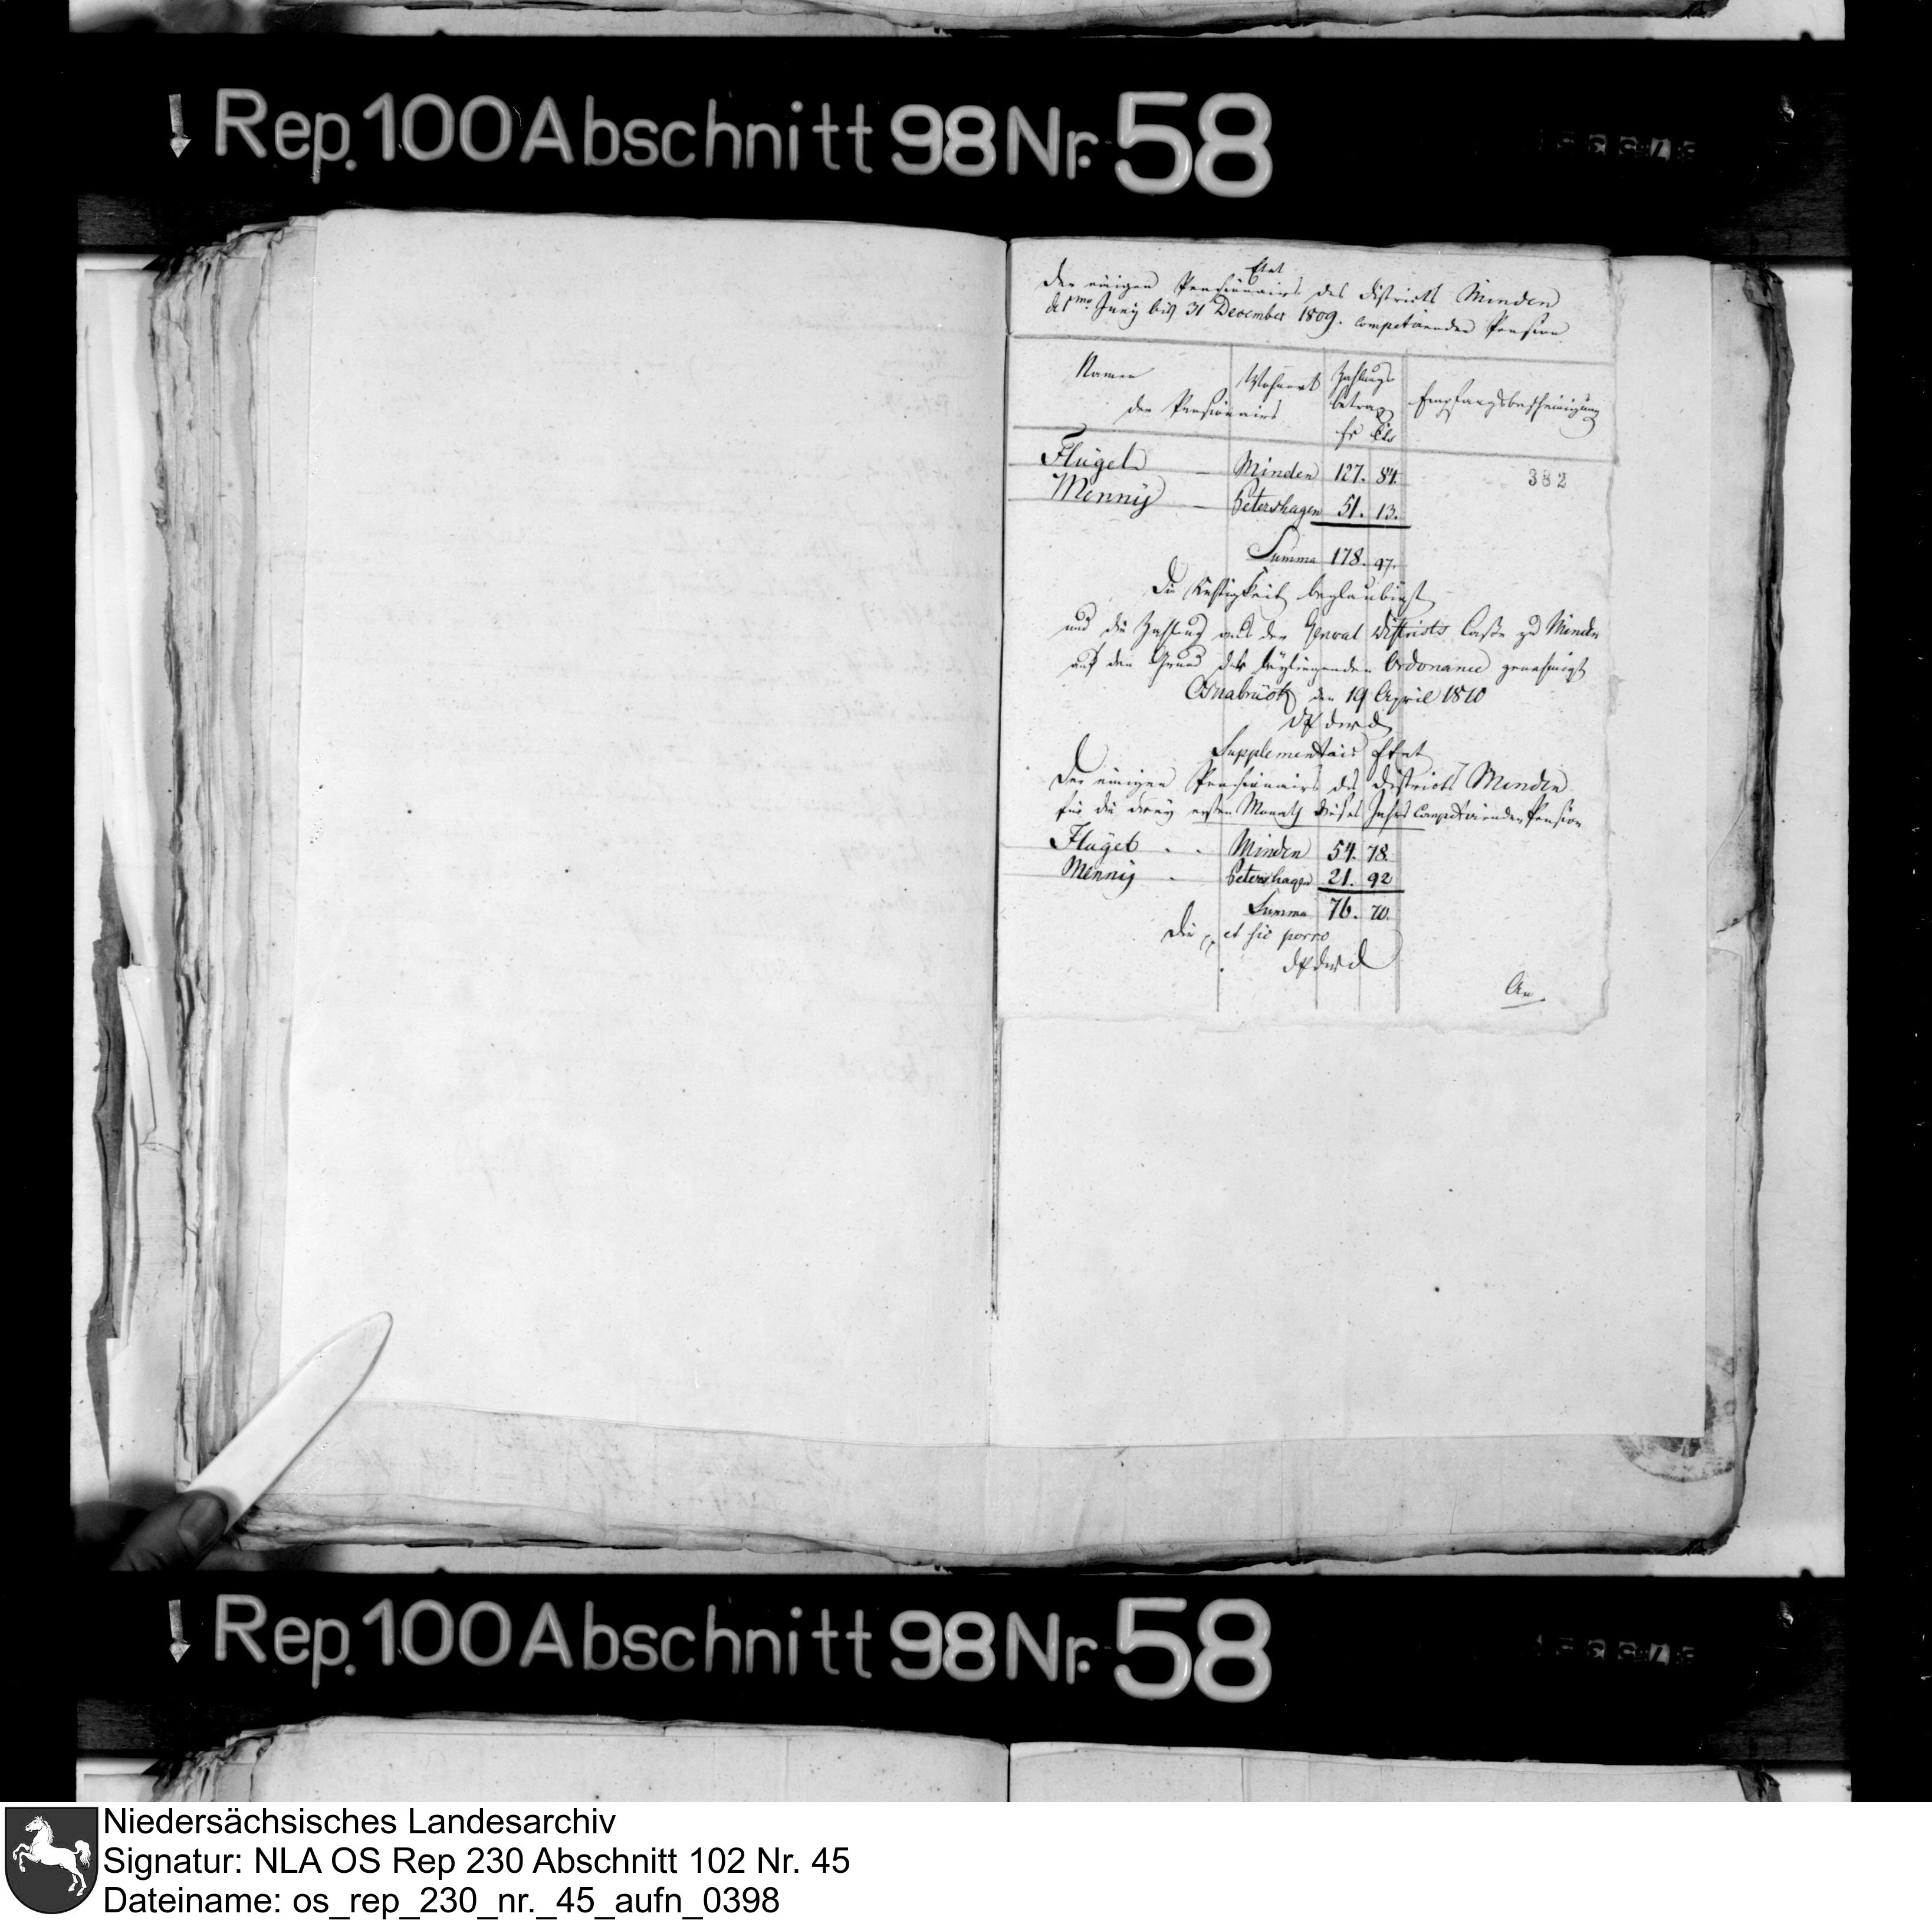 Rep. 100 Abschnitt 98 Nr. 58
Etat
der einigen Pensionairs des Districts Minden
bis 31 December 1809. competirenden Pension
Namen Wohnort Zahlungs
der Pensionairs betrag Empfangsbescheinigung
fr Cts
Flügel — Minden 127. 84.
382
Menny — Petershagen 51. 13.
Summa 178. 97.
Die Richtigkeit beglaubigt
und die Zahlung aus der General Districts Casse zu Minden
auf den Grund der beyliegenden Ordonance genehmigt
Osnabrück den 19 April 1810
Supplementair Etat
der einigen Pensionairs des Districts Minden
für die drey ersten Monath dieses Jahrs competirenden Pension
Flügel . . Minden 54. 78.
Menny . Petershagen 21. 92
Summa 76. 70.
Die et sic porro
An
Rep. 100 Abschnitt 98 Nr. 58
Niedersächsisches Landesarchiv
Signatur: NLA OS Rep 230 Abschnitt 102 Nr. 45
Dateiname: os_rep_230_nr._45_aufn_0398